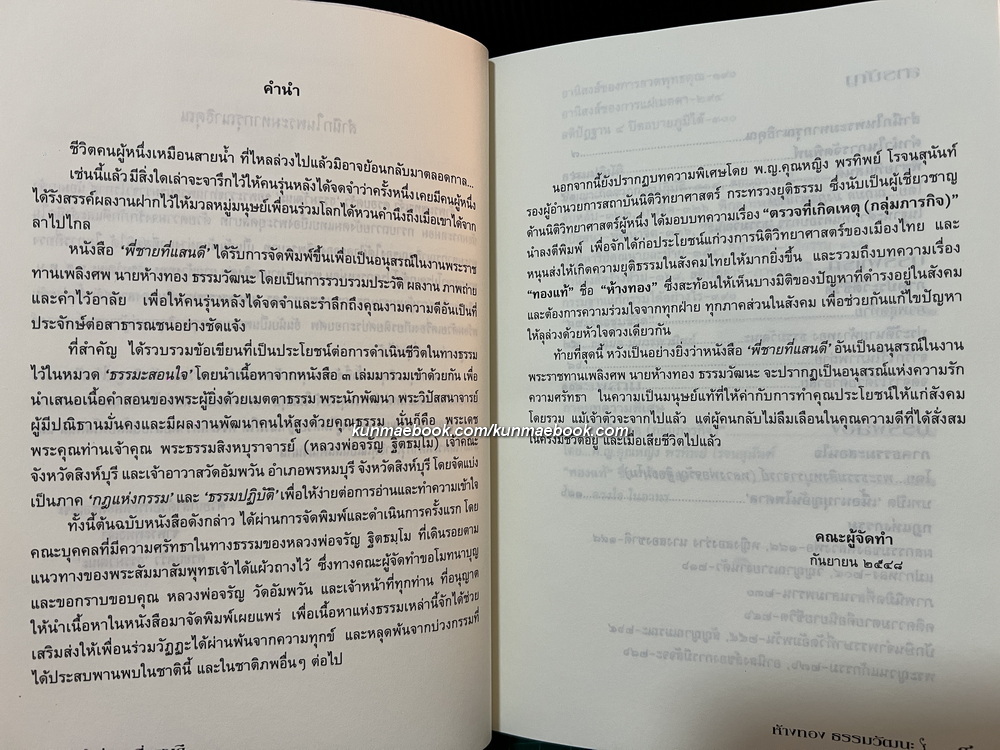 คำนำ
ชีวิตคนผู้หนึ่งเหมือนสายน้ำ ที่ไหลล่วงไปแล้วมิอาจย้อนกลับมาตลอดกาล...
เช่นนี้แล้วมีสิ่งใดเล่าจะจารึกไว้ให้คนรุ่นหลังได้จดจำว่าครั้งหนึ่งเคยมีคนผู้หนึ่ง
ได้รังสรรค์ผลงานฝากไว้ให้มวลหมู่มนุษย์เพื่อนร่วมโลกได้หวนคำนึงถึงเมื่อเขาได้จาก
ลาไปไกล
หนังสือ ‘พี่ชายที่แสนดี’ ได้รับการจัดพิมพ์ขึ้นเพื่อเป็นอนุสรณ์ในงานพระราช
ทานเพลิงศพ นายห้างทอง ธรรมวัฒนะ โดยเป็นการรวบรวมประวัติ ผลงาน ภาพถ่าย
และคำไว้อาลัย เพื่อให้คนรุ่นหลังได้จดจำและรำลึกถึงคุณงามความดีอันเป็นที่
ประจักษ์ต่อสาธารณชนอย่างชัดแจ้ง
ที่สำคัญ ได้รวบรวมข้อเขียนที่เป็นประโยชน์ต่อการดำเนินชีวิตในทางธรรม
ไว้ในหมวด ‘ธรรมะสอนใจ’ โดยนำเนื้อหาจากหนังสือ ๓ เล่มมารวมเข้าด้วยกัน เพื่อ
นำเสนอเนื้อคำสอนของพระผู้ยิ่งด้วยเมตตาธรรม พระนักพัฒนา พระวิปัสสนาจารย์
ผู้มีปณิธานมั่นคงและมีผลงานพัฒนาคนให้สูงด้วยคุณธรรม นั่นก็คือ พระเดช
พระคุณท่านเจ้าคุณ พระธรรมสิงหบุราจารย์ (หลวงพ่อจรัญ ฐิตธมฺโม) เจ้าคณะ
จังหวัดสิงห์บุรี และเจ้าอาวาสวัดอัมพวัน อำเภอพรหมบุรี จังหวัดสิงห์บุรี โดยจัดแบ่ง
เป็นภาค ‘กฎแห่งกรรม’ และ ‘ธรรมปฏิบัติ’ เพื่อให้ง่ายต่อการอ่านและทำความเข้าใจ
ทั้งนี้ต้นฉบับหนังสือดังกล่าว ได้ผ่านการจัดพิมพ์และดำเนินการครั้งแรก โดย
คณะบุคคลที่มีความศรัทธาในทางธรรมของหลวงพ่อจรัญ ฐิตธมฺโม ที่เดินรอยตาม
แนวทางของพระสัมมาสัมพุทธเจ้าได้แผ้วถางไว้ ซึ่งทางคณะผู้จัดทำขอโมทนาบุญ
และขอกราบขอบคุณ หลวงพ่อจรัญ วัดอัมพวัน และเจ้าหน้าที่ทุกท่าน ที่อนุญาต
ให้นำเนื้อหาในหนังสือมาจัดพิมพ์เผยแพร่ เพื่อเนื้อหาแห่งธรรมเหล่านี้จักได้ช่วย
เสริมส่งให้เพื่อนร่วมวัฏฏะได้ผ่านพ้นจากความทุกข์ และหลุดพ้นจากบ่วงกรรมที่
ได้ประสบพานพบในชาตินี้ และในชาติภพอื่นๆ ต่อไป
นอกจากนี้ยังปรากฏบทความพิเศษโดย พ.ญ.คุณหญิง พรทิพย์ โรจนสุนันท์
รองผู้อำนวยการสถาบันนิติวิทยาศาสตร์ กระทรวงยุติธรรม ซึ่งนับเป็นผู้เชี่ยวชาญ
ด้านนิติวิทยาศาสตร์ผู้หนึ่ง ได้มอบบทความเรื่อง “ตรวจที่เกิดเหตุ (กลุ่มภารกิจ)”
นำลงตีพิมพ์ เพื่อจักได้ก่อประโยชน์แก่วงการนิติวิทยาศาสตร์ของเมืองไทย และ
หนุนส่งให้เกิดความยุติธรรมในสังคมไทยให้มากยิ่งขึ้น และรวมถึงบทความเรื่อง
“ทองแท้” ชื่อ “ห้างทอง” ซึ่งสะท้อนให้เห็นบางมิติของปัญหาที่ดำรงอยู่ในสังคม
และต้องการความร่วมใจจากทุกฝ่าย ทุกภาคส่วนในสังคม เพื่อช่วยกันแก้ไขปัญหา
ให้ลุล่วงด้วยหัวใจดวงเดียวกัน
ท้ายที่สุดนี้ หวังเป็นอย่างยิ่งว่าหนังสือ ‘พี่ชายที่แสนดี’ อันเป็นอนุสรณ์ในงาน
พระราชทานเพลิงศพ นายห้างทอง ธรรมวัฒนะ จะปรากฏเป็นอนุสรณ์แห่งความรัก
ความศรัทธา ในความเป็นมนุษย์แท้ที่ให้ค่ากับการทำคุณประโยชน์ให้แก่สังคม
โดยรวม แม้เจ้าตัวจะจากไปแล้ว แต่ผู้คนกลับไม่ลืมเลือนในคุณความดีที่ได้สั่งสม
ในครั้งมีชีวิตอยู่ และเมื่อเสียชีวิตไปแล้ว
คณะผู้จัดทำ
กันยายน ๒๕๔๘
kunmaebook.com/kunmaebook.com
ห้างทอง ธรรมวัฒนะ